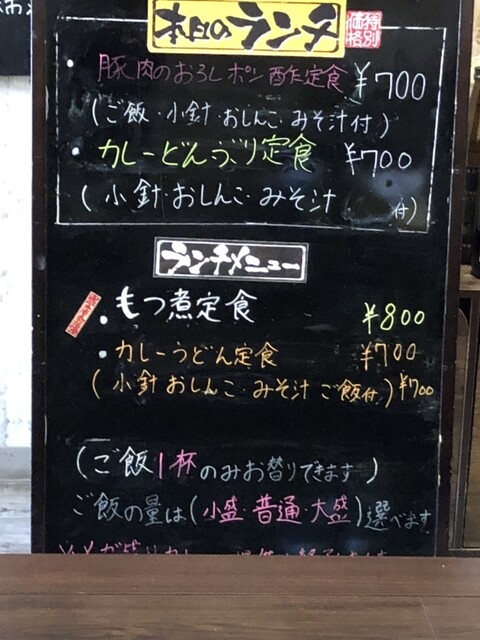 本日のランチ
特別価格
・豚肉のおろしポン酢定食 ¥700
(ご飯・小針・おしんこ・みそ汁付)
・カレーどんぶり定食 ¥700
(小針・おしんこ・みそ汁 付)
ランチメニュー
・もつ煮定食 ¥800
・カレーうどん定食 ¥700
(小針 おしんこ・みそ汁 ご飯付) ¥700
(ご飯1杯のみお替りできます)
ご飯の量は(小盛・普通・大盛)選べます